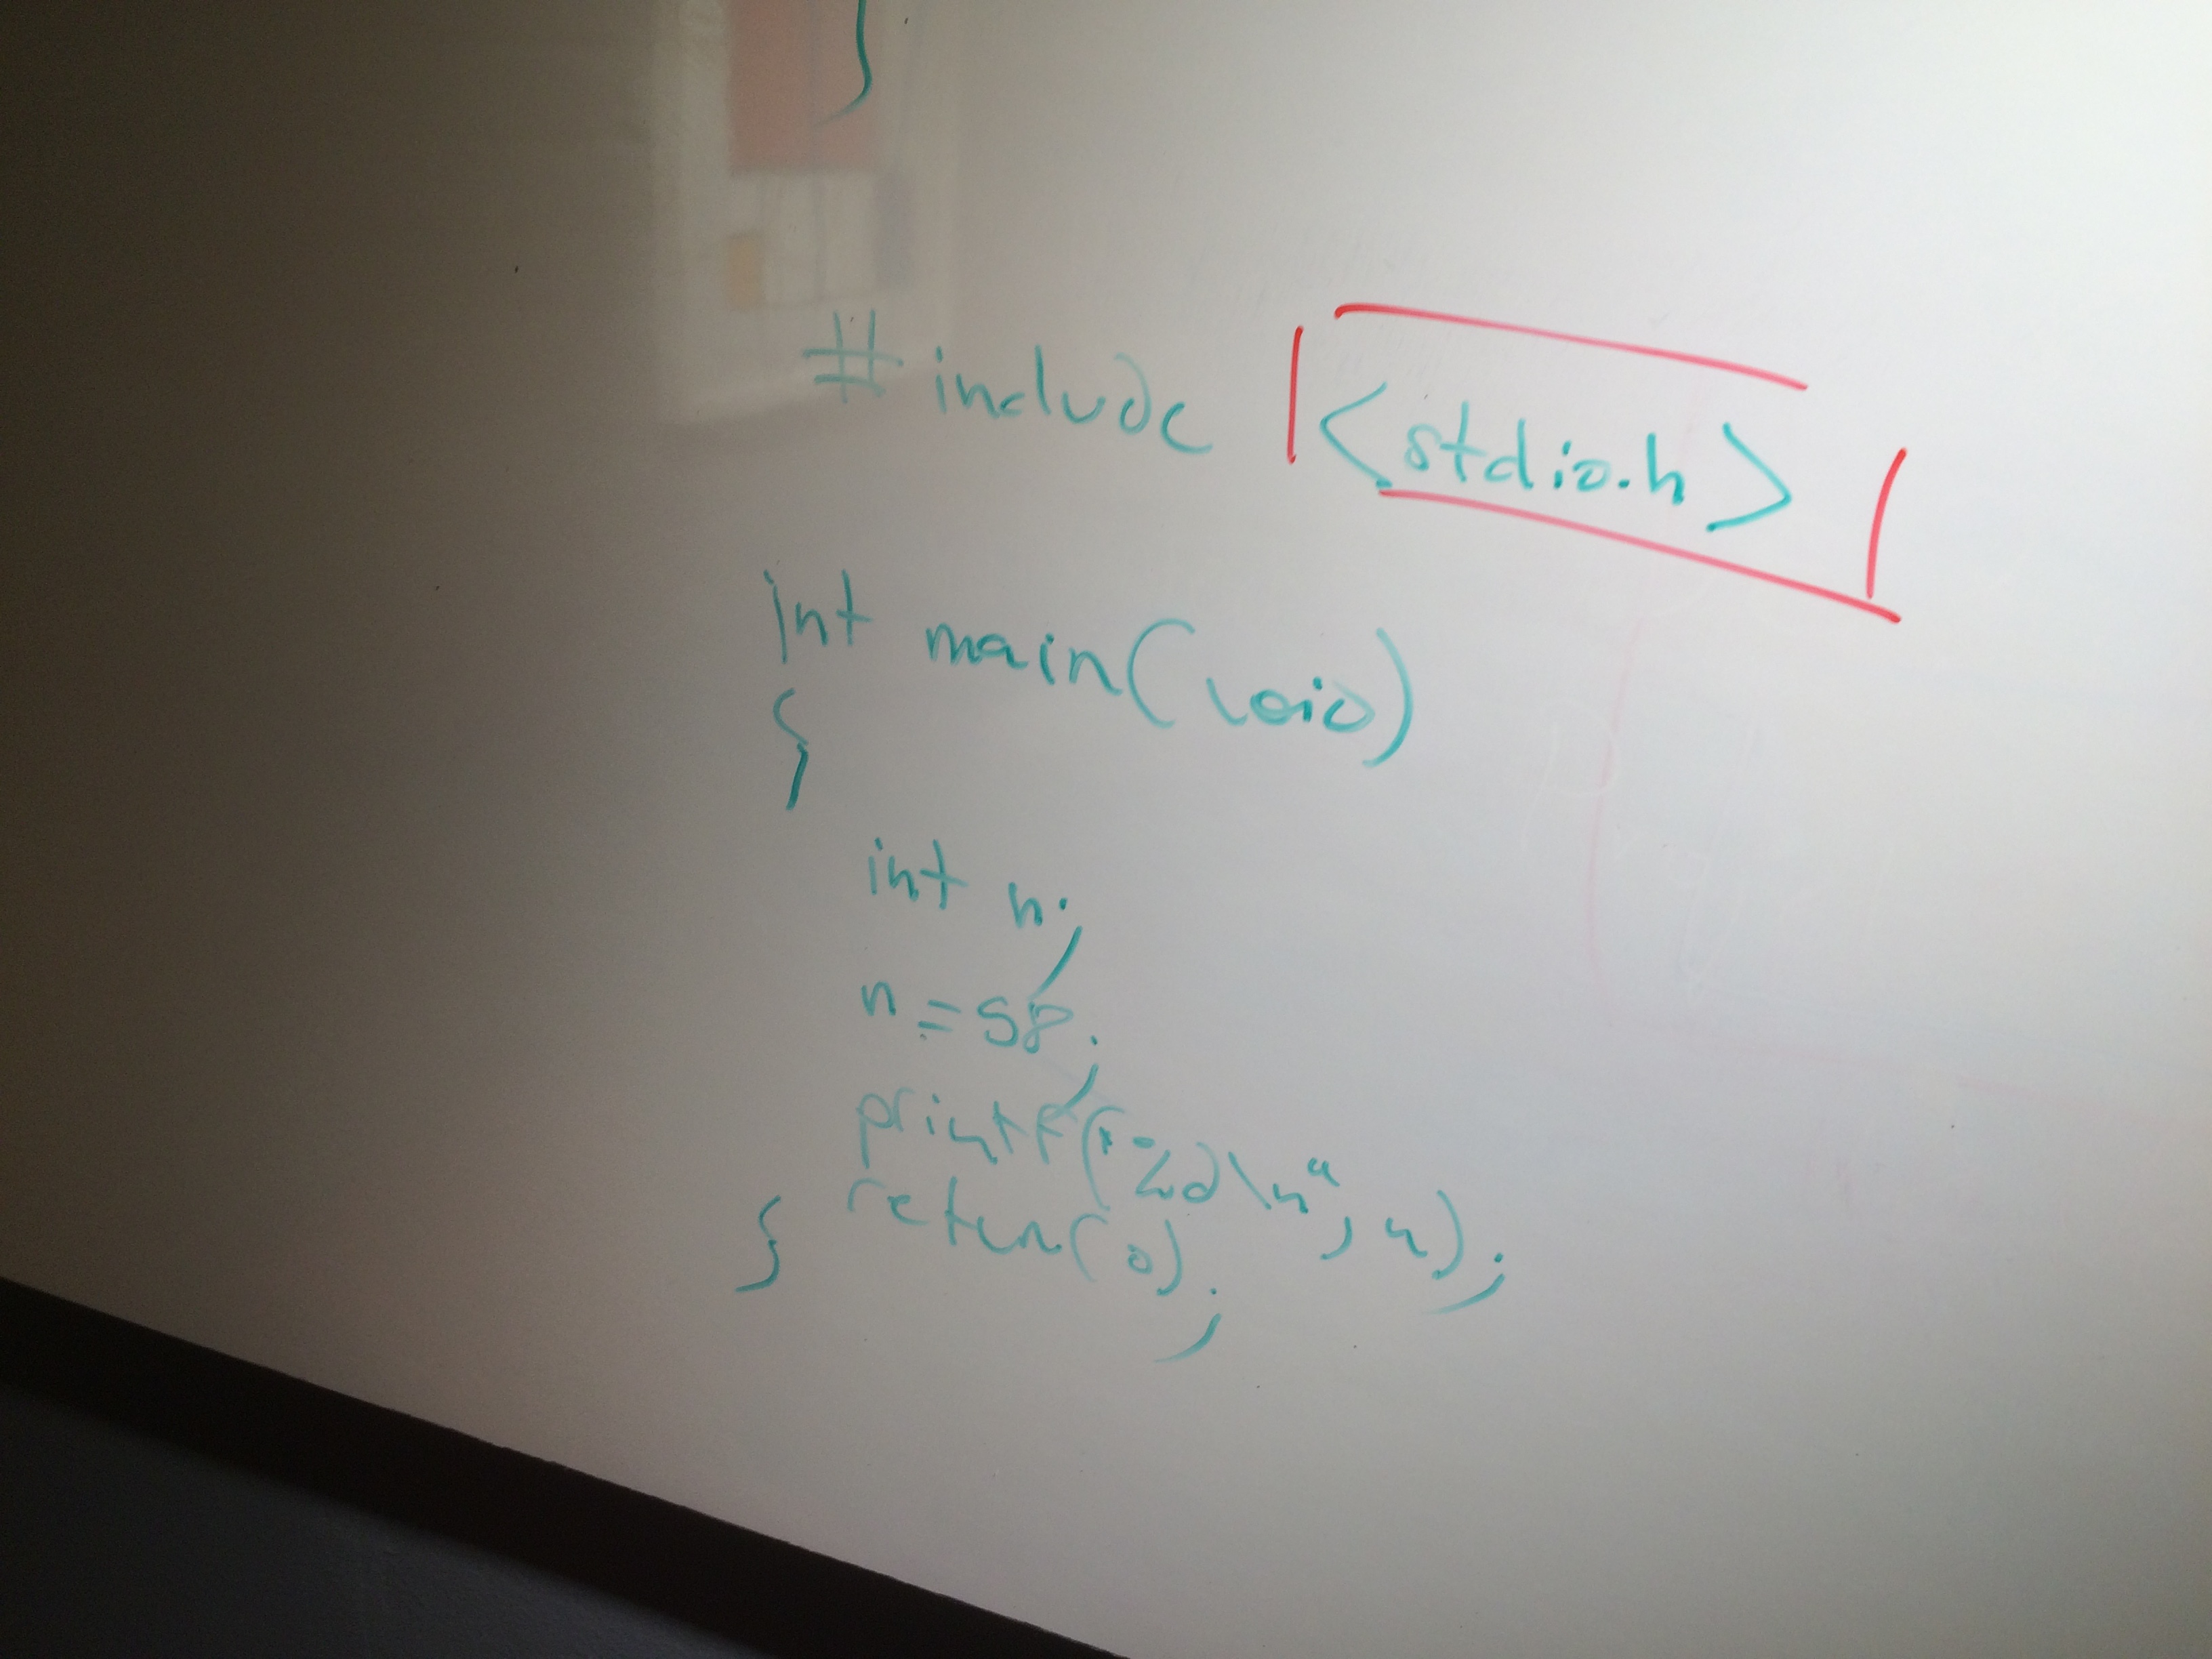 }
#include <stdio.h>
int main(void)
{
int n;
n = 58;
printf("%d\n", n);
return(0);
}